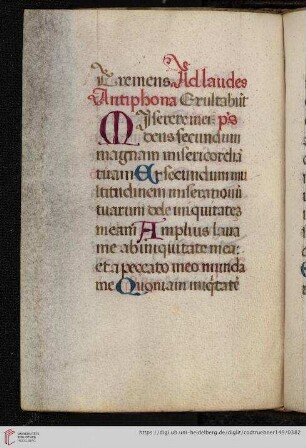 Tremens Ad laudes
Antiphona Exultabūt
Miserere mei ps
deus secundum
magnam misericordiā
tuam Et secundum mu
ltitudinem miserationū
tuarum dele iniquitatez
meam Amplius laua
me ab iniquitate mea:
et a peccato meo munda
me Quoniam iniq̄tatē
https://digi.ub.uni-heidelberg.de/diglit/codtruebner149/0382
UNIVERSITÄTS-
BIBLIOTHEK
HEIDELBERG